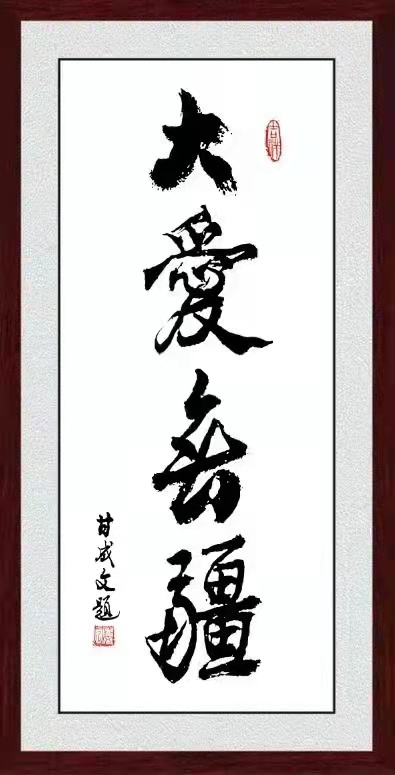 大愛無疆
甘成文題